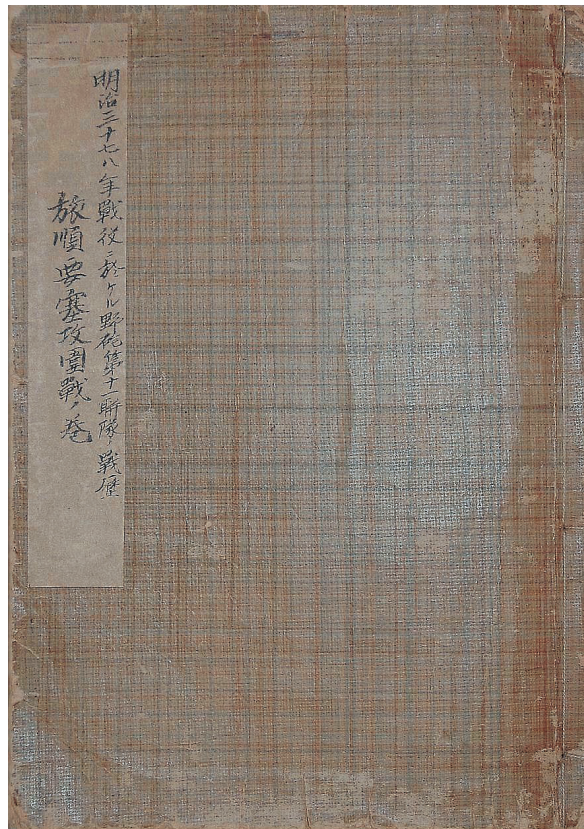 明治三十七八年戰役ニ於ケル野砲第十一聯隊ノ戰歴
旅順要塞攻圍戰ノ巻